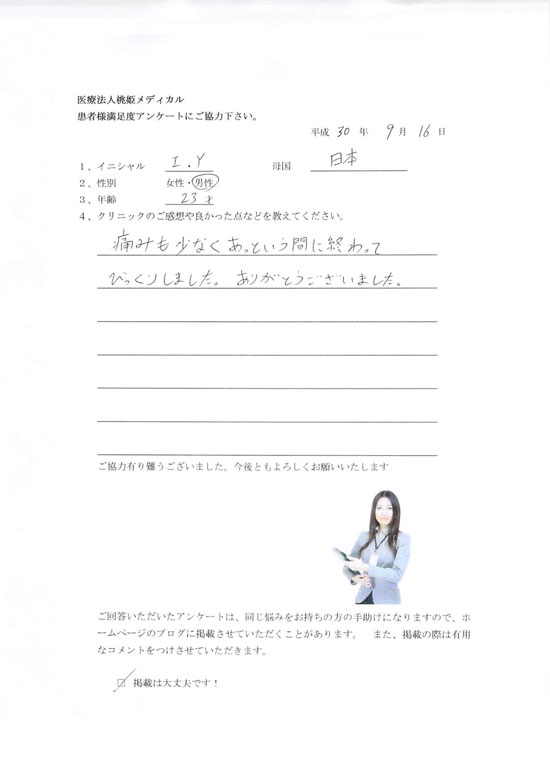 医療法人桃姫メディカル
患者様満足度アンケートにご協力下さい。
平成 30 年 9 月 16 日
1、イニシャル I.Y 母国 日本
2、性別 女性・男性
3、年齢 23才
4、クリニックのご感想や良かった点などを教えてください。
痛みも少なくあっという間に終わって
びっくりしました。ありがとうございました。
ご協力有り難うございました。今後ともよろしくお願いいたします
ご回答いただいたアンケートは、同じ悩みをお持ちの方の手助けになりますので、ホ
ームページのブログに掲載させていただくことがあります。 また、掲載の際は有用
なコメントをつけさせていただきます。
☑ 掲載は大丈夫です！